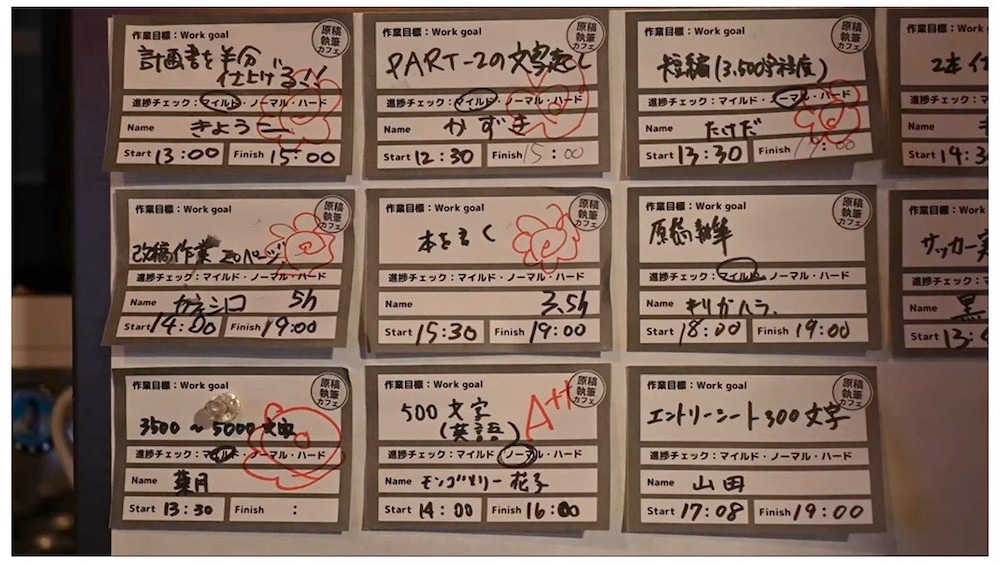 作業目標：Work goal
原稿
執筆
カフェ
計画書を半分
仕上げる!!
進捗チェック：マイルド・ノーマル・ハード
Name きょうこ
Start 13:00 Finish 15:00
作業目標：Work goal
原稿
執筆
カフェ
PART-2の文字起し
進捗チェック：マイルド・ノーマル・ハード
Name かずき
Start 12:30 Finish 15:00
作業目標：Work goal
原稿
執筆
カフェ
短編(3,500字程度)
進捗チェック：マイルド・ノーマル・ハード
Name たけだ
Start 13:30 Finish 17:00
作業
2本
進捗チ
Name
Start 14:3
作業目標：Work goal
原稿
執筆
カフェ
改稿作業 20ページ
進捗チェック：マイルド・ノーマル・ハード
Name カネシロ 5h
Start 14:00 Finish 19:00
作業目標：Work goal
原稿
執筆
カフェ
本を書く
進捗チェック：マイルド・ノーマル・ハード
Name 3.5h
Start 15:30 Finish 19:00
作業目標：Work goal
原稿
執筆
カフェ
原稿執筆
進捗チェック：マイルド・ノーマル・ハード
Name キリガハラ
Start 18:00 Finish 19:00
作業目
サッカー実
進捗チ
Name 黒
Start 13:
作業目標：Work goal
原稿
執筆
カフェ
3500〜5000文字
進捗チェック：マイルド・ノーマル・ハード
Name 葉月
Start 13:30 Finish :
作業目標：Work goal
原稿
執筆
カフェ
500文字
(英語)
A++
進捗チェック：マイルド・ノーマル・ハード
Name モンゴメリー花子
Start 14:00 Finish 16:00
作業目標：Work goal
原稿
執筆
カフェ
エントリーシート300文字
進捗チェック：マイルド・ノーマル・ハード
Name 山田
Start 17:08 Finish 19:00